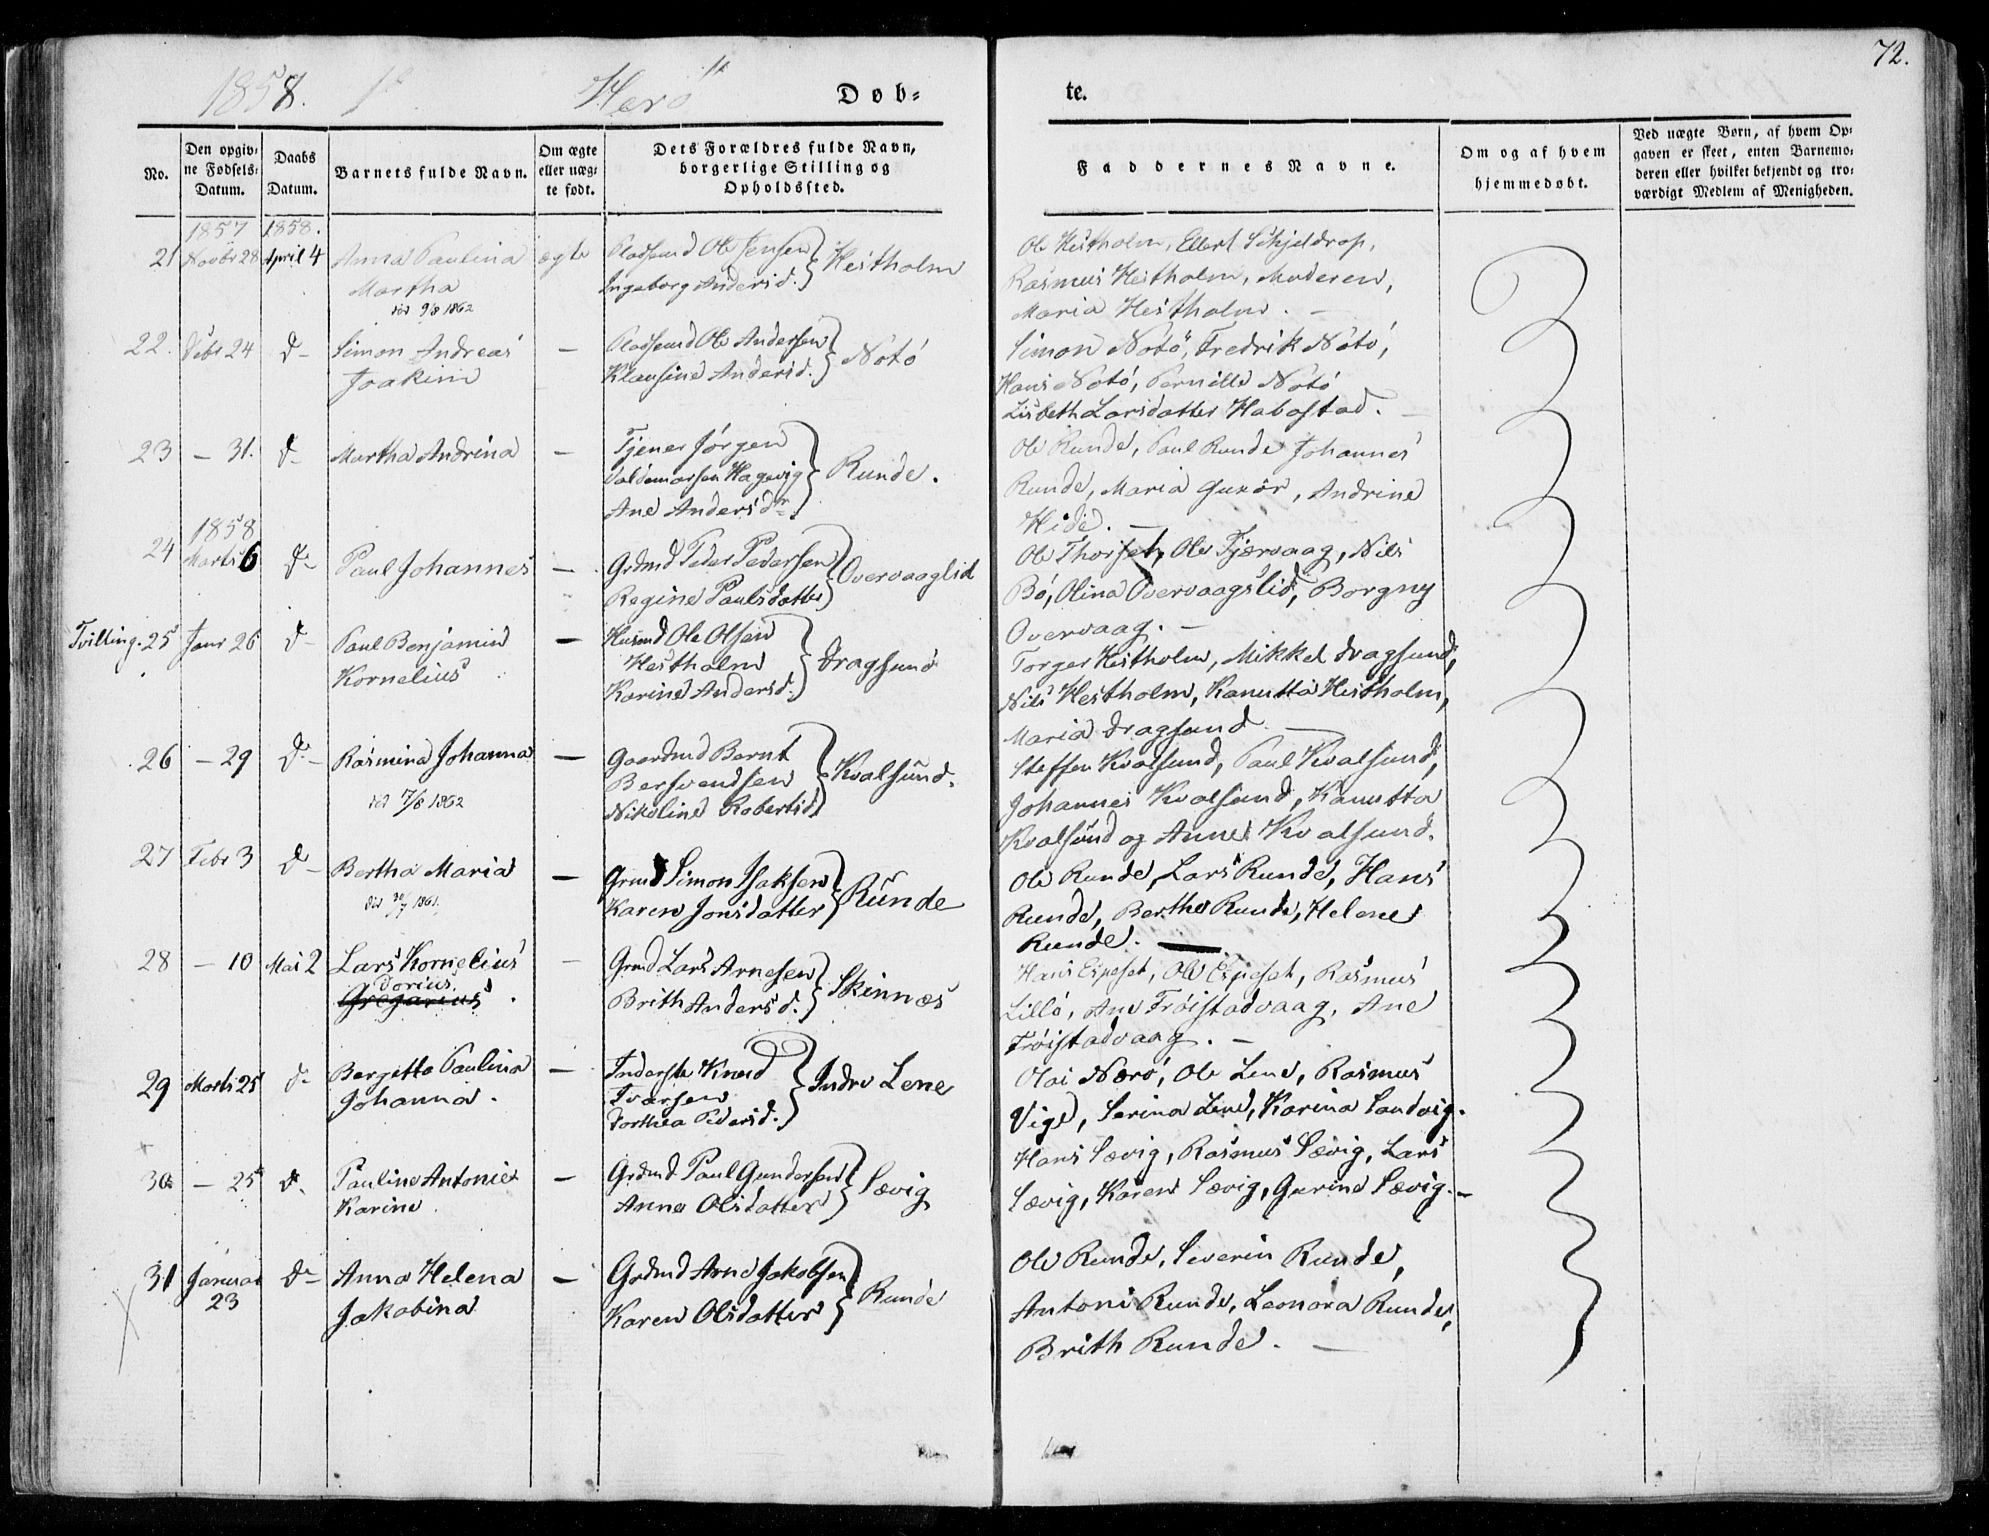 72.
1858. Herö
Døb-
te.
No.
Den opgiv-
ne Fødsels-
Datum.
Daabs
Datum.
Barnets fulde Navn.
Om ægte
eller uæg-
te født.
Dets Forældres fulde Navn,
borgerlige Stilling og
Opholdssted.
Faddernes Navne.
Om og af hvem
hjemmedøbt.
Ved uægte Børn, af hvem Op-
gaven er skeet, enten Barnemo-
deren eller hvilket bekjendt og tro-
værdigt Medlem af Menigheden.
1857 1858.
21 Novbr 28 April 4 Anna Paulina ægte Pladsmd Ole Jensen Hestholm Ole Hestholm, Ellert Schjeldrop,
Martha Ingeborg Andersd. Rasmus Hestholm, Moderen,
död 9/8 1862 Maria Hestholm. —
22. Dcbr 24 d— Simon Andreas — Pladsmd Ole Andersen Notö Simon Notö, Fredrik Notö,
Joakim Klausine Andersd. Hans Notö, Pernille Notö
Lisbeth Larsdatter Habostad. —
23 — 31. d— Martha Andrina — Tjener Jörgen Runde. Ole Runde, Paul Runde Johannes
Valdemarsen Hagevig Runde, Maria Gurör, Andrine
Ane Andersdr Hide. —
1858
24 Marts 6 d— Paul Johannes — Grdmd Peter Pedersen Overvaaglid Ole Thorset, Ole Tjærvaag, Nils
Regine Paulsdatter Bö, Olina Overvaagslid, Borgny
Overvaag. —
Tvilling. 25 Janr 26 d— Paul Benjamin — Husmd Ole Olsen Dragsund Torger Hestholm, Mikkel Dragsund,
Kornelius Hestholm Nils Hestholm, Kanutta Hestholm,
Karine Andersd. Maria Dragsund —
26 — 29 d— Rasmina Johanna — Gaardmd Bernt Kvalsund. Steffen Kvalsund, Paul Kvalsund,
död 17/8 1862 Bersvendsen Johannes Kvalsund, Kanutta
Nikoline Robertsd. Kvalsund og Anne Kvalsund.
27 Febr 3 d— Bertha Maria — Grmd Simon Isaksen Runde Ole Runde, Lars Runde, Hans
död 30/7 1861. Karen Jonsdatter Runde, Berthe Runde, Helene
Runde. —
28 — 10 Mai 2 Lars Kornelius — Grmd Lars Arnesen Skinnæs Hans Espeset, Ole Espeset, Rasmus
dorius. Brith Andersd. Lillö, Ane Fröistadvaag, Ane
Gregarius. Fröistadvaag. —
29 Marts 25 d— Bergette Paulina — Inderste Knud Indre Lene Olai Nærö, Ole Lene, Rasmus
Johanna. Ivarsen Vige, Serina Lene, Karina Sandvig.
Dorthea Pedersd.
30 — 25 d. Pauline Antonie — Grdmd Paul Gundersen Sævig Hans Sævig, Rasmus Sævig, Lars
Karine Anne Olsdatter Sævig, Karen Sævig, Gurine Sævig. —
31 Januar d— Anna Helena — Grdmd Arne Jakobsen Runde Ole Runde, Severin Runde,
23 Jakobina Karen Olsdatter Antoni Runde, Leonora Runde,
Brith Runde. —